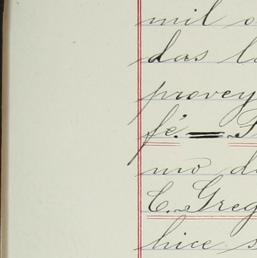 mil o
das la
provey
fé.
mo d
C. Greg
hice s